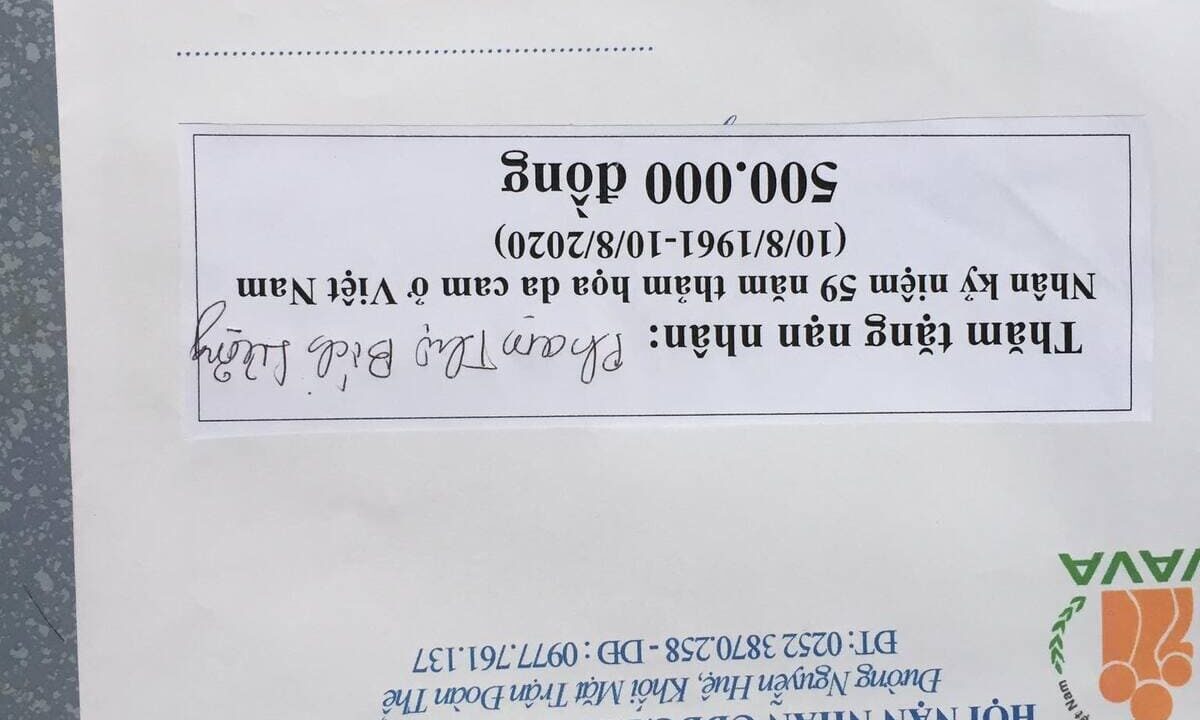 HỘI NẠN NHÂN
Đường Nguyễn Huệ, Khối Mặt Trận Đoàn Thể,
ĐT: 0252 3870.258 - DĐ : 0977.761.137
Nam
VAVA
Thăm tặng nạn nhân: Phạm Thị Bích Lượng
Nhân kỷ niệm 59 năm thảm họa da cam ở Việt Nam
(10/8/1961-10/8/2020)
500.000 đồng